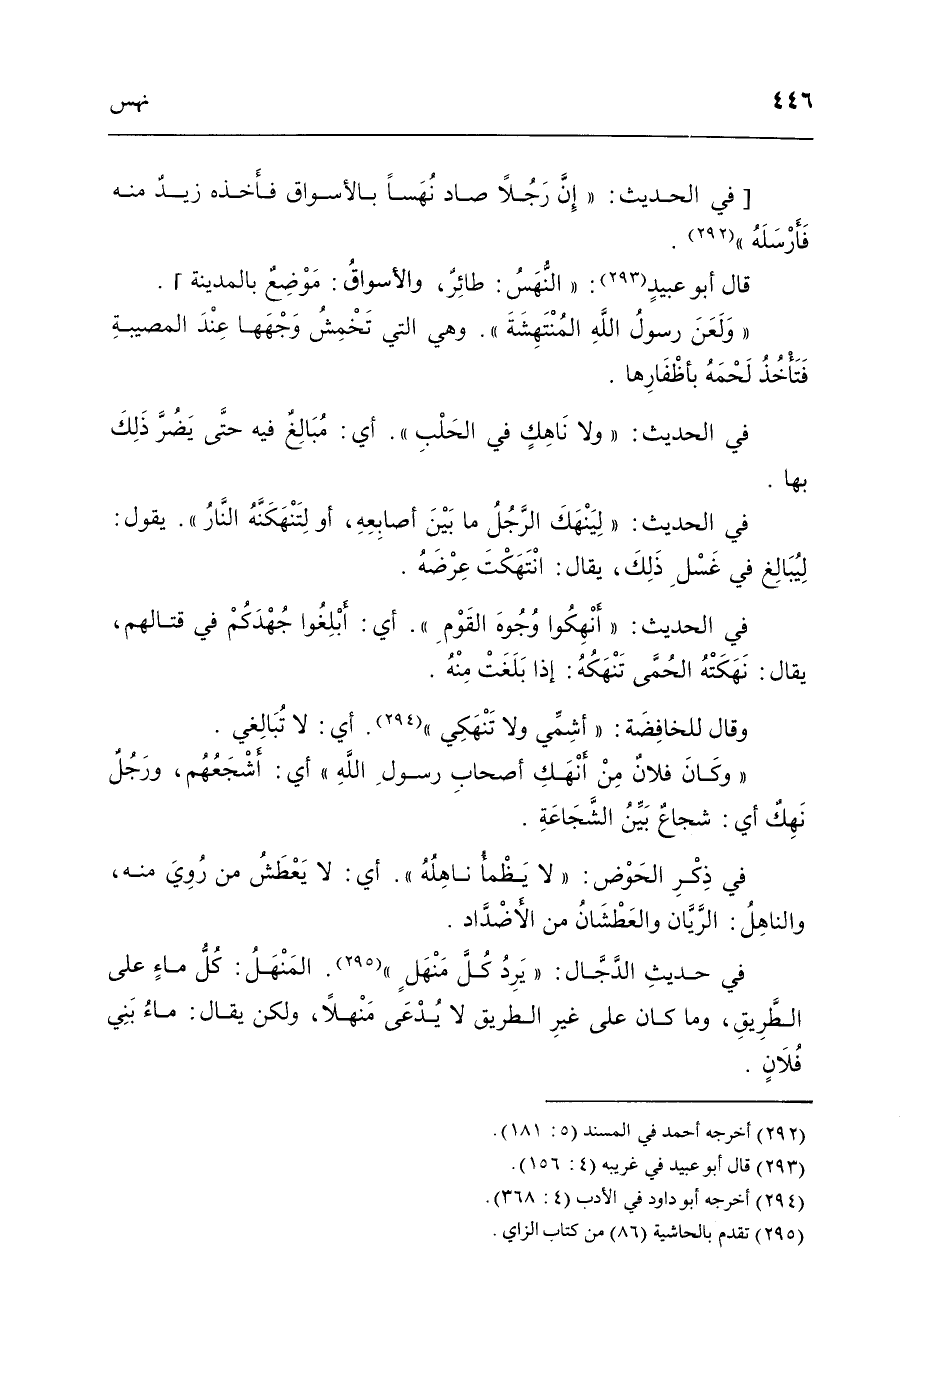 ٤٤٦
نهس
[ في الحديث: « إِنَّ رَجُلاً صاد نُهَساً بالأسواق فأَخذه زيدٌ منه
فَأَرْسَلَهُ »(٢٩٢) .
قال أبو عبيدٍ(٢٩٣): « النُّهَسُ: طائِرٌ، والأسواقُ: مَوْضِعٌ بالمدينة ] .
« وَلَعَنَ رسولُ اللَّهِ المُنْتَهِشَةَ ». وهي التي تَخْمِشُ وَجْهَها عِنْدَ المصيبةِ
فَتَأْخُذُ لَحْمَهُ بأظْفَارِها .
في الحديث: « ولا نَاهِكٍ في الحَلْبِ ». أي: مُبَالِغٌ فيه حتَّى يَضُرَّ ذَلِكَ
بها .
في الحديث: « لِيَنْهَكَ الرَّجُلُ ما بَيْنَ أصابِعِهِ، أو لِتَنْهَكَنَّهُ النَّارُ ». يقول:
لِيُبَالِغ في غَسْلِ ذَلِكَ، يقال: انْتَهَكْتَ عِرْضَهُ .
في الحديث: « أَنْهِكُوا وُجُوهَ القَوْمِ ». أي: أَبْلِغُوا جُهْدَكُمْ في قتالهم،
يقال: نَهَكَتْهُ الحُمَّى تَنْهَكُهُ: إذا بَلَغَتْ مِنْهُ .
وقال للخافِضَة: « أشِمِّي ولا تَنْهَكِي »(٢٩٤). أي: لا تُبَالِغي .
« وكَانَ فلانٌ مِنْ أَنْهَكِ أصحابِ رسولِ اللَّهِ » أي: أَشْجَعُهُم، ورَجُلٌ
نَهِكٌ أي: شجاعٌ بَيِّنُ الشَّجَاعَةِ .
في ذِكْرِ الحَوْض: « لا يَظْمأُ ناهِلُهُ ». أي: لا يَعْطَشُ من رُوِيَ منه،
والناهِلُ: الرَّيَّان والعَطْشَانُ من الأَضْدَّاد .
في حديثِ الدَّجَّال: « يَرِدُ كُلَّ مَنْهَلٍ »(٢٩٥). المَنْهَلُ: كُلُّ ماءٍ على
الطَّرِيقِ، وما كان على غيرِ الطريق لا يُدْعَى مَنْهلاً، ولكن يقال: ماءُ بَنِي
فُلَانٍ .
(٢٩٢) أخرجه أحمد في المسند (٥: ١٨١).
(٢٩٣) قال أبو عبيد في غريبه (٤: ١٥٦).
(٢٩٤) أخرجه أبو داود في الأدب (٤: ٣٦٨).
(٢٩٥) تقدم بالحاشية (٨٦) من كتاب الزاي .